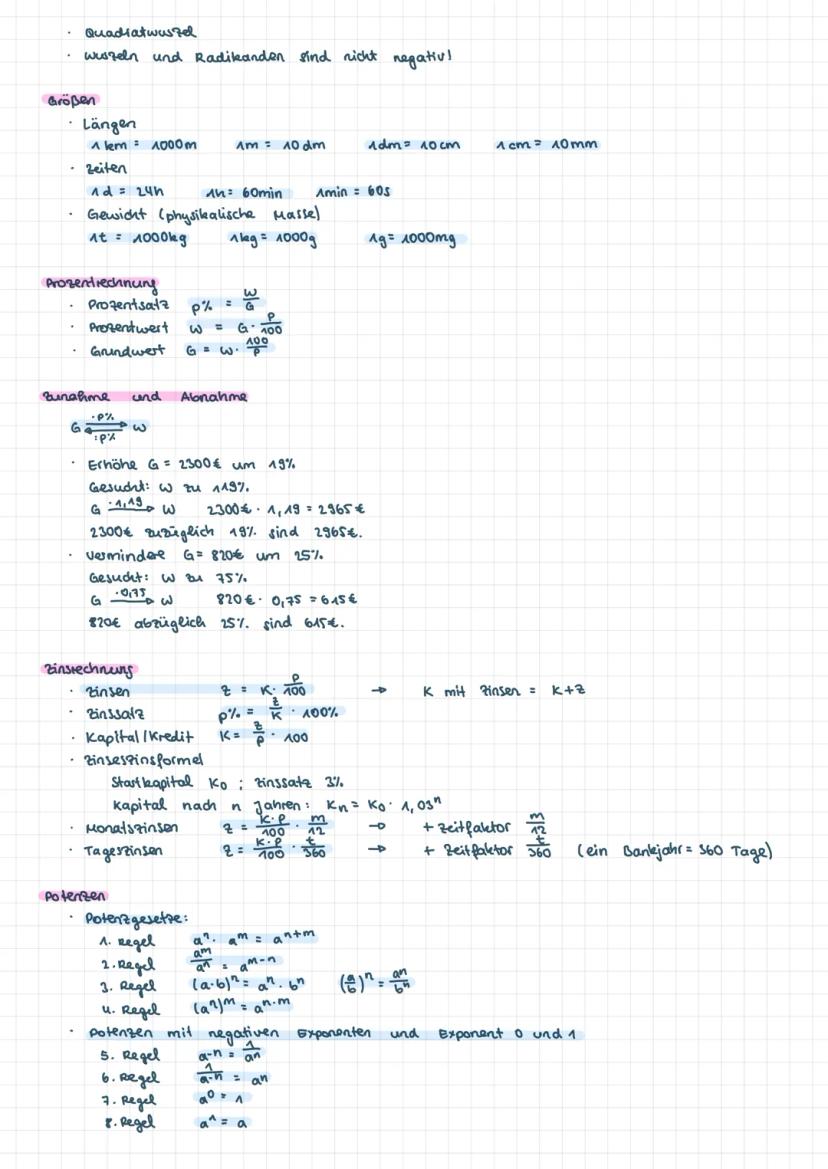 · Quadratwurzel
· Wurzeln und Radikanden sind nicht negativ!
Größen
· Längen
1 km = 1000m 1m = 10 dm 1dm = 10 cm 1 cm = 10mm
· Zeiten
1 d = 24h 1h = 60min 1min = 60s
· Gewicht (physikalische Masse)
1t = 1000kg 1kg = 1000g 1g = 1000mg
Prozentrechnung
· Prozentsatz p% = W/G
· Prozentwert W = G · p/100
· Grundwert G = W · 100/p
Zunahme und Abnahme
G ·p% :p% W
· Erhöhe G = 2300€ um 19%
Gesucht: W zu 119%
G ·1,19 → W 2300€ · 1,19 = 2965€
2300€ zuzüglich 19% sind 2965€.
· Vermindere G = 820€ um 25%
Gesucht: W zu 75%
G ·0,75 → W 820€ · 0,75 = 615€
820€ abzüglich 25% sind 615€.
Zinsrechnung
· Zinsen Z = K · p/100 → K mit Zinsen = K+Z
· Zinssatz p% = Z/K · 100%
· Kapital/Kredit K = Z/p · 100
· Zinseszinsformel
Startkapital K₀ ; Zinssatz 3%
Kapital nach n Jahren: Kn = K₀ · 1,03ⁿ
· Monatszinsen Z = K·p/100 · m/12 → + Zeitfaktor m/12
· Tageszinsen Z = K·p/100 · t/360 → + Zeitfaktor t/360 (ein Bankjahr = 360 Tage)
Potenzen
· Potenzgesetze:
1. Regel aⁿ · aᵐ = aⁿ⁺ᵐ
2. Regel aᵐ/aⁿ = aᵐ⁻ⁿ
3. Regel (a·b)ⁿ = aⁿ · bⁿ (a/b)ⁿ = aⁿ/bⁿ
4. Regel (aⁿ)ᵐ = aⁿ·ᵐ
· Potenzen mit negativen Exponenten und Exponent 0 und 1
5. Regel a⁻ⁿ = 1/aⁿ
6. Regel 1/a⁻ⁿ = aⁿ
7. Regel a⁰ = 1
8. Regel a¹ = a